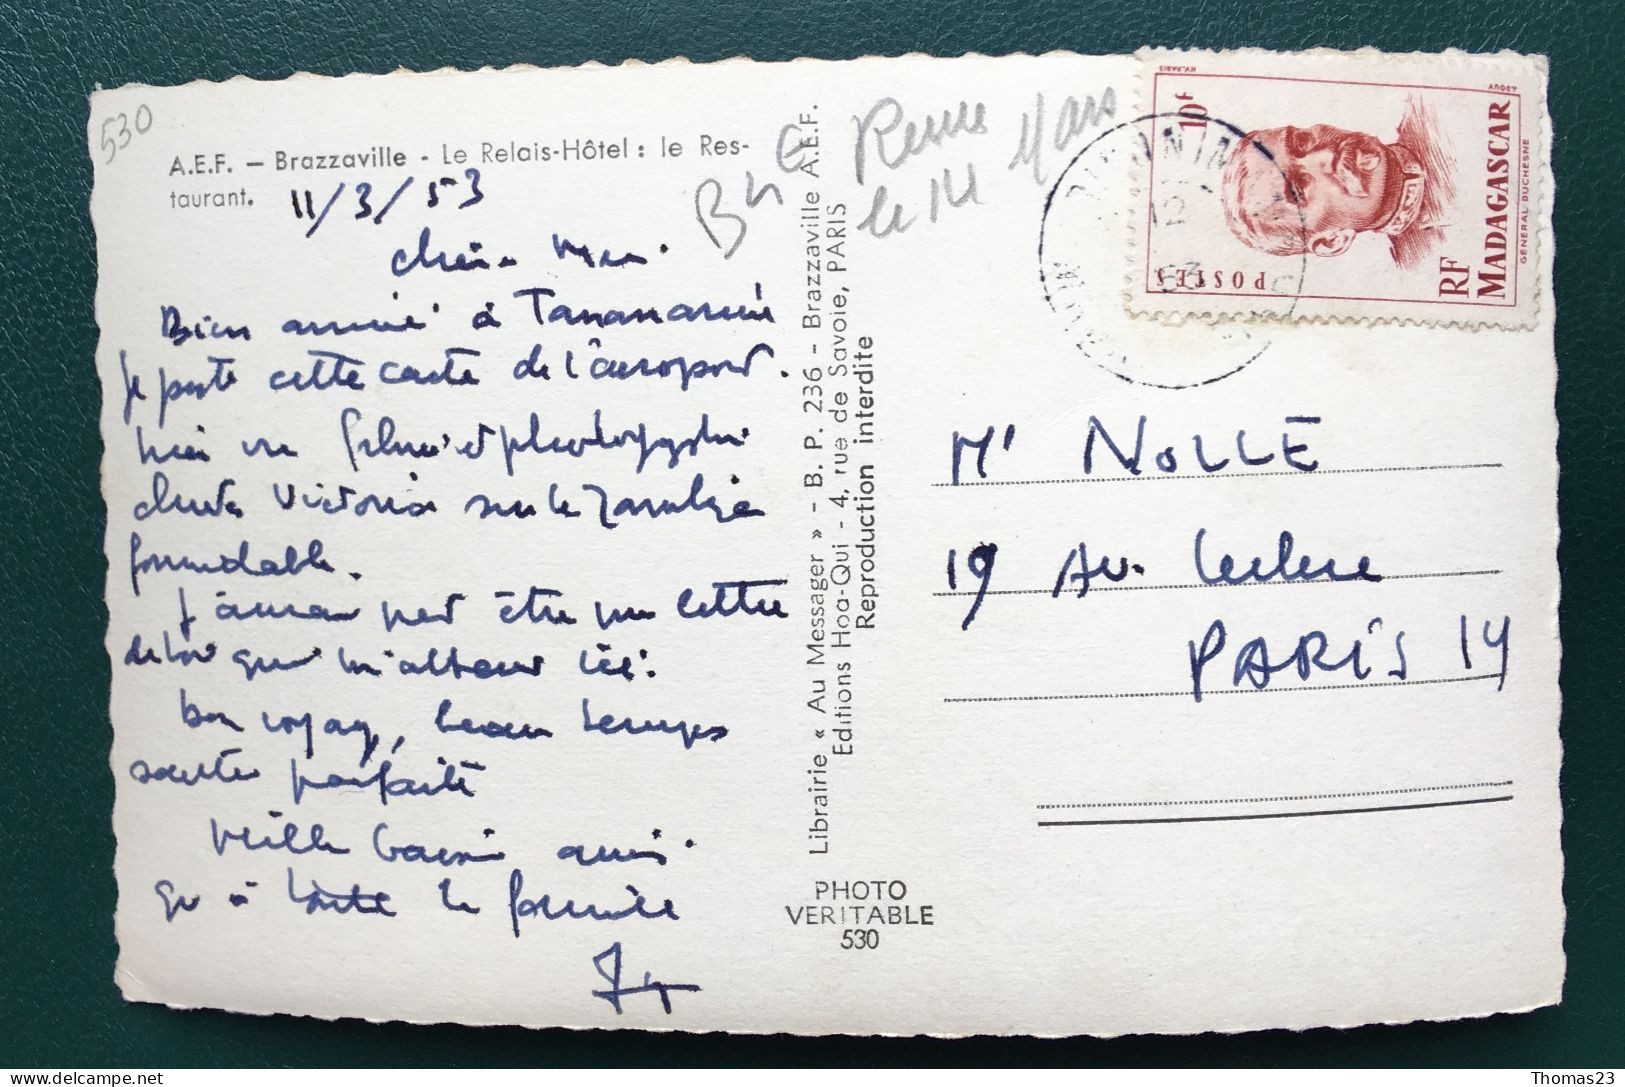 530
A.E.F. — Brazzaville - Le Relais-Hôtel : le Res-
taurant.
11/3/53
Bien arrivé à Tananarive
Je poste cette carte de l'aéroport.
chutes Victoria sur le Zambèze
formidable.
J'aurai peut être une lettre
de toi qui m'attend ici.
bon voyage, beau temps
santé parfaite
Mille baisers ainsi
qu'à toute la famille
Librairie « Au Messager » - B. P. 236 - Brazzaville A.E.F.
Editions Hoa-Qui - 4, rue de Savoie, PARIS
Reproduction interdite
PHOTO
VERITABLE
530
le 14 Mars
10F
POSTES
RF
MADAGASCAR
GÉNÉRAL DUCHESNE
Mr NOLLE
19 Av. Leclerc
PARIS 14
Thomas23